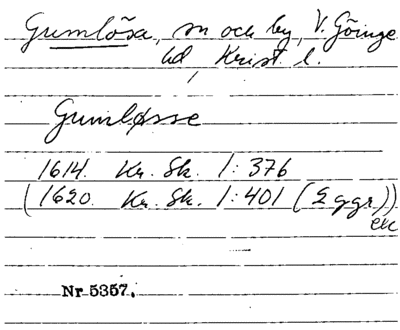 Gumlösa, sn och by, V. Göinge
hd, Krist. l.
Gumløsse
1614. Kr. Sk. 1: 376
(1620. Kr. Sk. 1: 401 (2 ggr))
etc
Nr 5357.